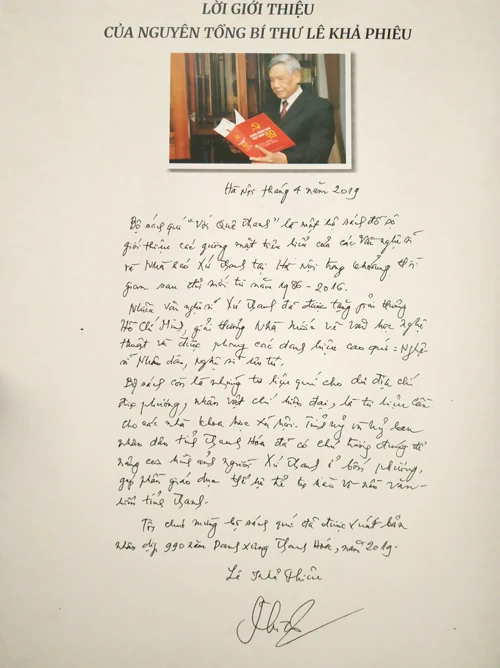 LỜI GIỚI THIỆU
CỦA NGUYÊN TỔNG BÍ THƯ LÊ KHẢ PHIÊU
Hà Nội tháng 4 năm 2019
Bộ sách quý "Với Quê Thanh" là một bộ sách đồ sộ
giới thiệu các gương mặt tiêu biểu của các Văn nghệ sĩ
và Nhà báo Xứ Thanh tại Hà Nội trong khoảng thời
gian sau đổi mới từ năm 1986 - 2016.
Nhiều văn nghệ sĩ Xứ Thanh đã được tặng giải thưởng
Hồ Chí Minh, giải thưởng Nhà nước về văn học nghệ
thuật và được phong các danh hiệu cao quý: Nghệ
sĩ Nhân dân, Nghệ sĩ ưu tú.
Bộ sách còn là những tư liệu quý cho địa chí
địa phương, nhân vật chí hiện đại, là tư liệu cần
cho các nhà khoa học xã hội. Tỉnh ủy và ủy ban
nhân dân tỉnh Thanh Hóa đã có chủ trương đúng để
nâng cao hình ảnh người Xứ Thanh ở bốn phương,
góp phần giáo dục thế hệ trẻ tự hào về nền văn
hiến tỉnh Thanh.
Tôi chúc mừng bộ sách quý đã được xuất bản
nhân dịp 990 năm Danh xưng Thanh Hóa, năm 2019.
Lê Khả Phiêu